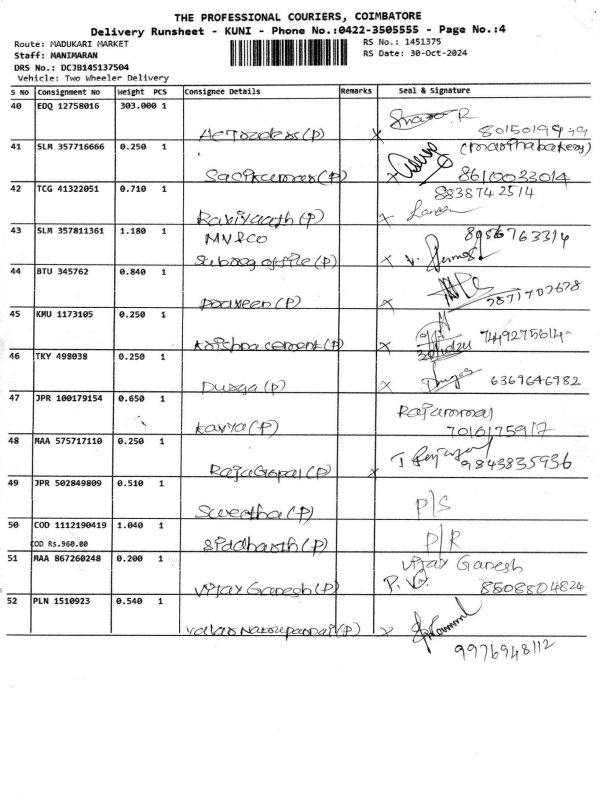 THE PROFESSIONAL COURIERS, COIMBATORE
Delivery Runsheet - KUNI - Phone No.:0422-3505555 - Page No.:4
Route: MADUKARI MARKET RS No.: 1451375
Staff: MANIMARAN RS Date: 30-Oct-2024
DRS No.: DCJB145137504
Vehicle: Two Wheeler Delivery
S No Consignment No Weight PCS Consignee Details Remarks Seal & Signature
40 EDQ 12758016 303.000 1
(P) x
41 SLM 357716666 0.250 1
Sasikumar (P) x 8610033014
42 TCG 41322051 0.710 1 8838742514
(P) x
43 SLM 357811361 1.180 1 MV&CO 8956763314
Subreg office (P) x
44 BTU 345762 0.840 1
Praveen (P) x 9871707678
45 KMU 1173105 0.250 1
Krishna cement (P) x 7449275614
46 TKY 498038 0.250 1
Durga (P) x 6369646982
47 JPR 100179154 0.650 1 Rajammal
Kavya (P) 7016175917
48 MAA 575717110 0.250 1
RajaGopal (P) x 9843835936
49 JPR 502849809 0.510 1
Swetha (P) P/S
50 COD 1112190419 1.040 1
COD Rs.960.00 Siddharth (P) P/R
51 MAA 867260248 0.200 1 Vijay Ganesh
Vijay Ganesh (P) P. V. 8508804824
52 PLN 1510923 0.540 1
(P) x
9976948112